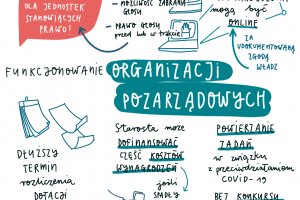 DLA JEDNOSTEK
STANOWIĄCYCH
PRAWO!
- MOŻLIWOŚĆ ZABRANIA
GŁOSU
- PRAWO GŁOSU
przed lub w trakcie
mogą być
ONLINE
ZA
UDOKUMENTOWANĄ
ZGODĄ
WŁADZ
FUNKCJONOWANIE ORGANIZACJI
POZARZĄDOWYCH
DŁUŻSZY
TERMIN
rozliczenia
DOTACJI
Starosta może
DOFINANSOWAĆ
CZĘŚĆ KOSZTÓW
WYNAGRODZEŃ
jeśli
SPADŁY
POWIERZANIE
ZADAŃ
w związku
z przeciwdziałaniem
COVID-19
BEZ KONKURSU